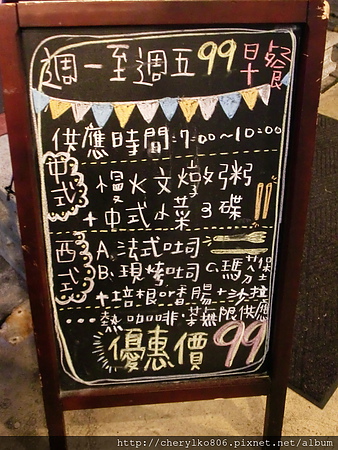 週一至週五99早餐
供應時間:7:00~10:00
中式
慢火文燉粥
+中式小菜3碟
西式
A.法式吐司
B.現烤吐司 C.瑪芬堡
+培根or香腸+沙拉
···熱咖啡.茶無限供應
優惠價99
http://cherylko806.pixnet.net/album